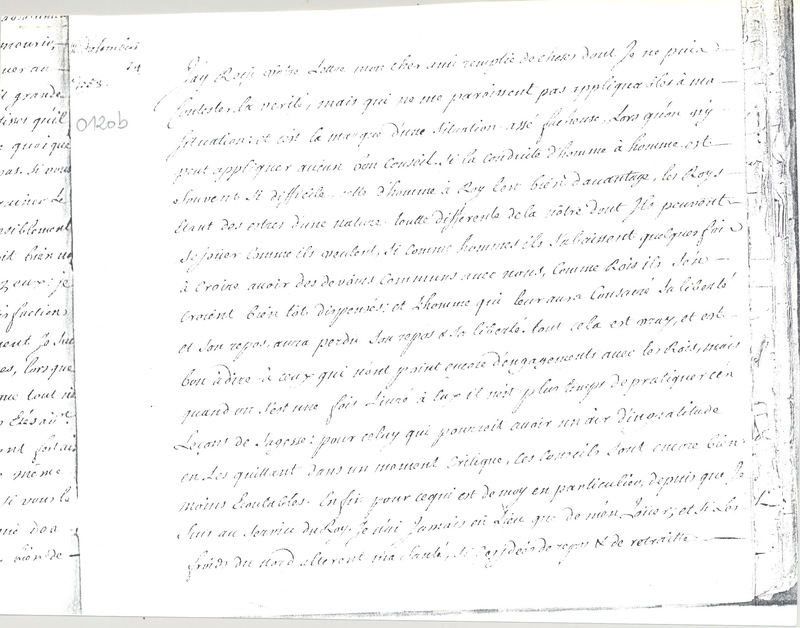 mourir,
uer au
it grande
qu'il
quoique
pas. si vous
nsiblement
oit bien
yeux: je
isfaction
ment Je
es, lorsque
que tout
ont fort
même
si vous
bien de
24
0120b
J'ay Reçu votre Lettre mon cher ami remplie de choses dont Je ne puis
Contester la verité, mais qui ne me paroissent pas appliquables à ma
situation: et c'est la marque d'une situation assé facheuse, Lors qu'on n'y
peut appliquer aucun bon Conseil. Si la conduite d'homme à homme est
souvent si difficile, celle d'homme à Roy l'est bien d'avantage, les Roys
étant des estres d'une nature toutte differente de la nôtre dont Ils peuvent
se jouer comme ils veulent, si comme hommes ils s'abaissent quelques fois
à croire avoir des devoirs Communs avec nous, Comme Rois ils s'en
croient bien tôt dispensés: et L'homme qui leur aura Consacré sa liberté
et son repos, aura perdu son repos & sa liberté. tout cela est vray, et est
bon à dire à ceux qui n'ont point encore d'engagements avec les Rois, mais
quand on s'est une fois Livré à Eux il n'est plus temps de pratiquer ces
Leçons de sagesse: pour celuy qui pourroit avoir un air d'ingratitude
en Les quittant dans un moment Critique, ces conseils sont encore bien
moins Ecoutables. Enfin pour ce qui est de moy en particulier, depuis que Je
suis au service du Roy Je n'ai Jamais eu Lieu que de m'en Louer; et si Les
froids du Nord alterent ma santé, si Les idées de repos & de retraitte